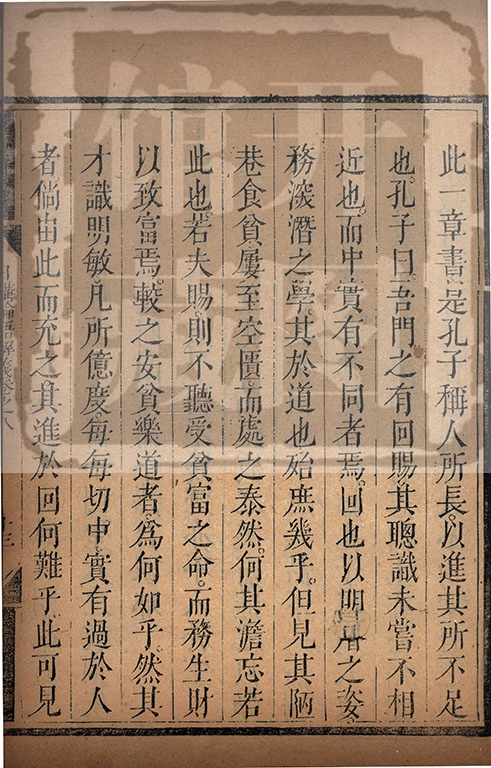 此一章書是孔子稱人所長以進其所不足
也孔子曰吾門之有回賜其聰識未嘗不相
近也而中實有不同者焉回也以明睿之姿
務深潛之學其於道也殆庶幾乎但見其陋
巷食貧屢至空匱而處之泰然何其澹忘若
此也若夫賜則不聽受貧富之命而務生財
以致富焉較之安貧樂道者為何如乎然其
才識明敏凡所億度每每切中實有過於人
者倘由此而充之其進於回何難乎此可見